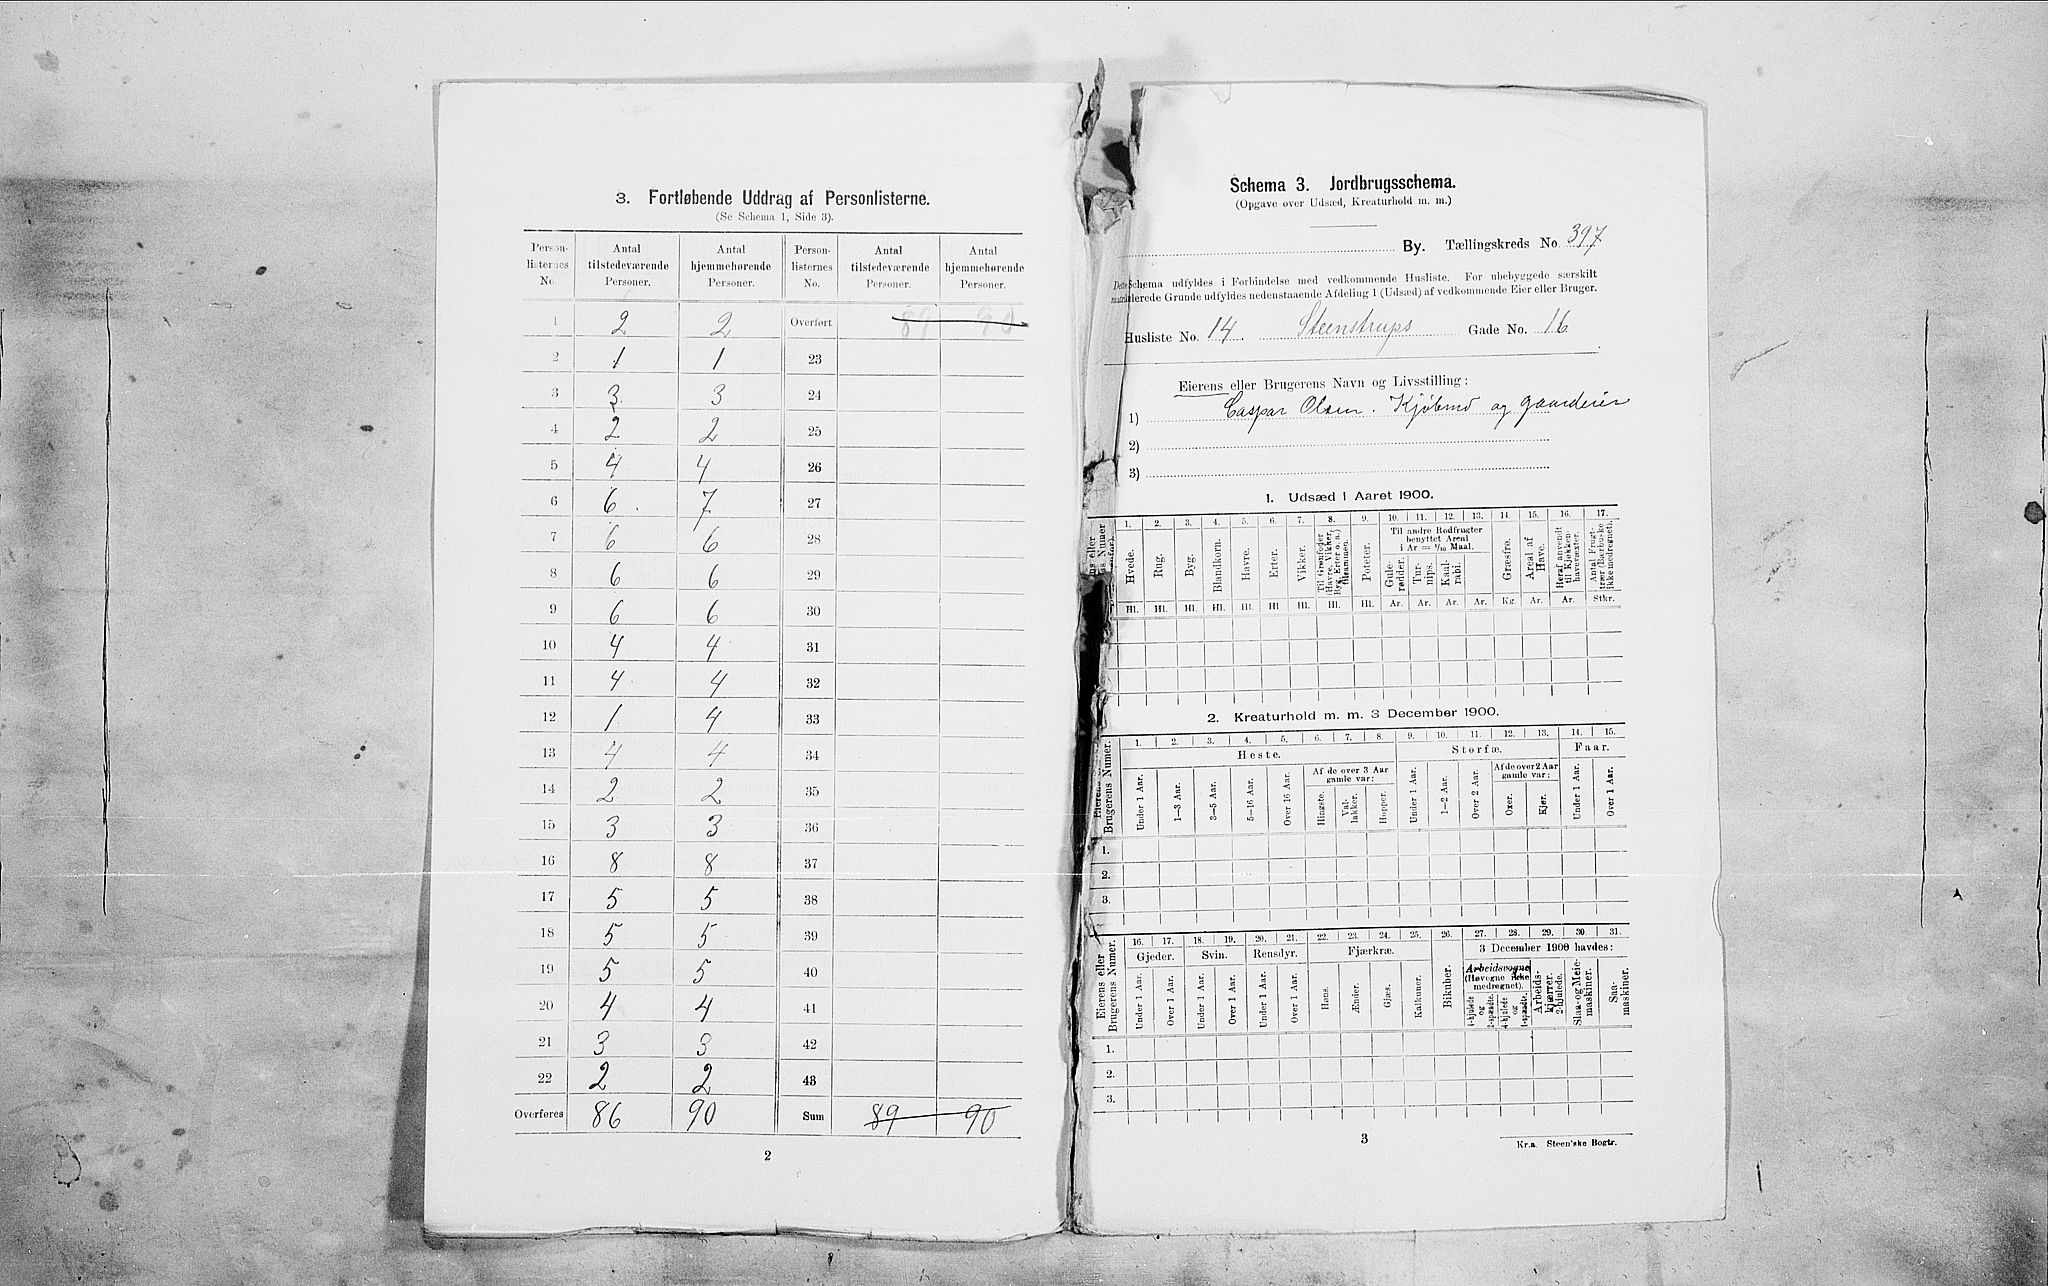 3. Fortløbende Uddrag af Personlisterne.
(Se Schema 1, Side 3).
Person-listernes No. Antal tilstedeværende Personer. Antal hjemmehørende Personer. Person-listernes No. Antal tilstedeværende Personer. Antal hjemmehørende Personer.
1 2 2 Overført 89 90
2 1 1 23
3 3 3 24
4 2 2 25
5 4 4 26
6 6 7 27
7 6 6 28
8 6 6 29
9 6 6 30
10 4 4 31
11 4 4 32
12 1 4 33
13 4 4 34
14 2 2 35
15 3 3 36
16 8 8 37
17 5 5 38
18 5 5 39
19 5 5 40
20 4 4 41
21 3 3 42
22 2 2 43
Overføres 86 90 Sum 89 90
2
Schema 3. Jordbrugsschema.
(Opgave over Udsæd, Kreaturhold m. m.)
By. Tællingskreds No. 397
Dette Schema udfyldes i Forbindelse med vedkommende Husliste. For ubebyggede særskilt
matrikulerede Grunde udfyldes nedenstaaende Afdeling 1 (Udsæd) af vedkommende Eier eller Bruger.
Husliste No. 14 Steenstrups Gade No. 16
Eierens eller Brugerens Navn og Livsstilling:
1) Caspar Olsen. Kjøbmd og gaardeier
2)
3)
1. Udsæd i Aaret 1900.
1. 2. 3. 4. 5. 6. 7. 8. 9. 10. 11. 12. 13. 14. 15. 16. 17.
Til andre Rodfrugter benyttet Areal i Ar = 1/10 Maal.
Hvede. Rug. Byg. Blandkorn. Havre. Erter. Vikker. Til Grønfoder (Havre, Vikker, Byg, Erter o. a.) tilsammen. Poteter. Gulerødder. Turnips. Kaalrabi. Græsfrø. Areal af Have. Heraf anvendt til Kjøkkenhavevæxter. Antal Frugttrær (Bærbuske ikke medregnet).
Hl. Hl. Hl. Hl. Hl. Hl. Hl. Hl. Hl. Ar. Ar. Ar. Ar. Kg. Ar. Ar. Stkr.
2. Kreaturhold m. m. 3 December 1900.
Brugerens Numer.
1. 2. 3. 4. 5. 6. 7. 8. 9. 10. 11. 12. 13. 14. 15.
Heste. Storfæ. Faar.
Af de over 3 Aar gamle var: Af de over 2 Aar gamle var:
Under 1 Aar. 1—3 Aar. 3—5 Aar. 5—16 Aar. Over 16 Aar. Hingste. Vallakker. Hopper. Under 1 Aar. 1—2 Aar. Over 2 Aar. Oxer. Kjør. Under 1 Aar. Over 1 Aar.
1.
2.
3.
Eierens eller Brugerens Numer.
16. 17. 18. 19. 20. 21. 22. 23. 24. 25. 26. 27. 28. 29. 30. 31.
Gjeder. Svin. Rensdyr. Fjærkræ. 3 December 1900 havdes:
Arbeidsvogne (Høvogne ikke medregnet).
Under 1 Aar. Over 1 Aar. Under 1 Aar. Over 1 Aar. Under 1 Aar. Over 1 Aar. Høns. Ænder. Gjæs. Kalkuner. Bikuber. 4-hjulede og 2-spændte. 4-hjulede og 1-spændte. Arbeidskjærrer, 2-hjulede. Slaa- og Meiemaskiner. Saamaskiner.
1.
2.
3.
3
Kr.a. Steen'ske Bogtr.